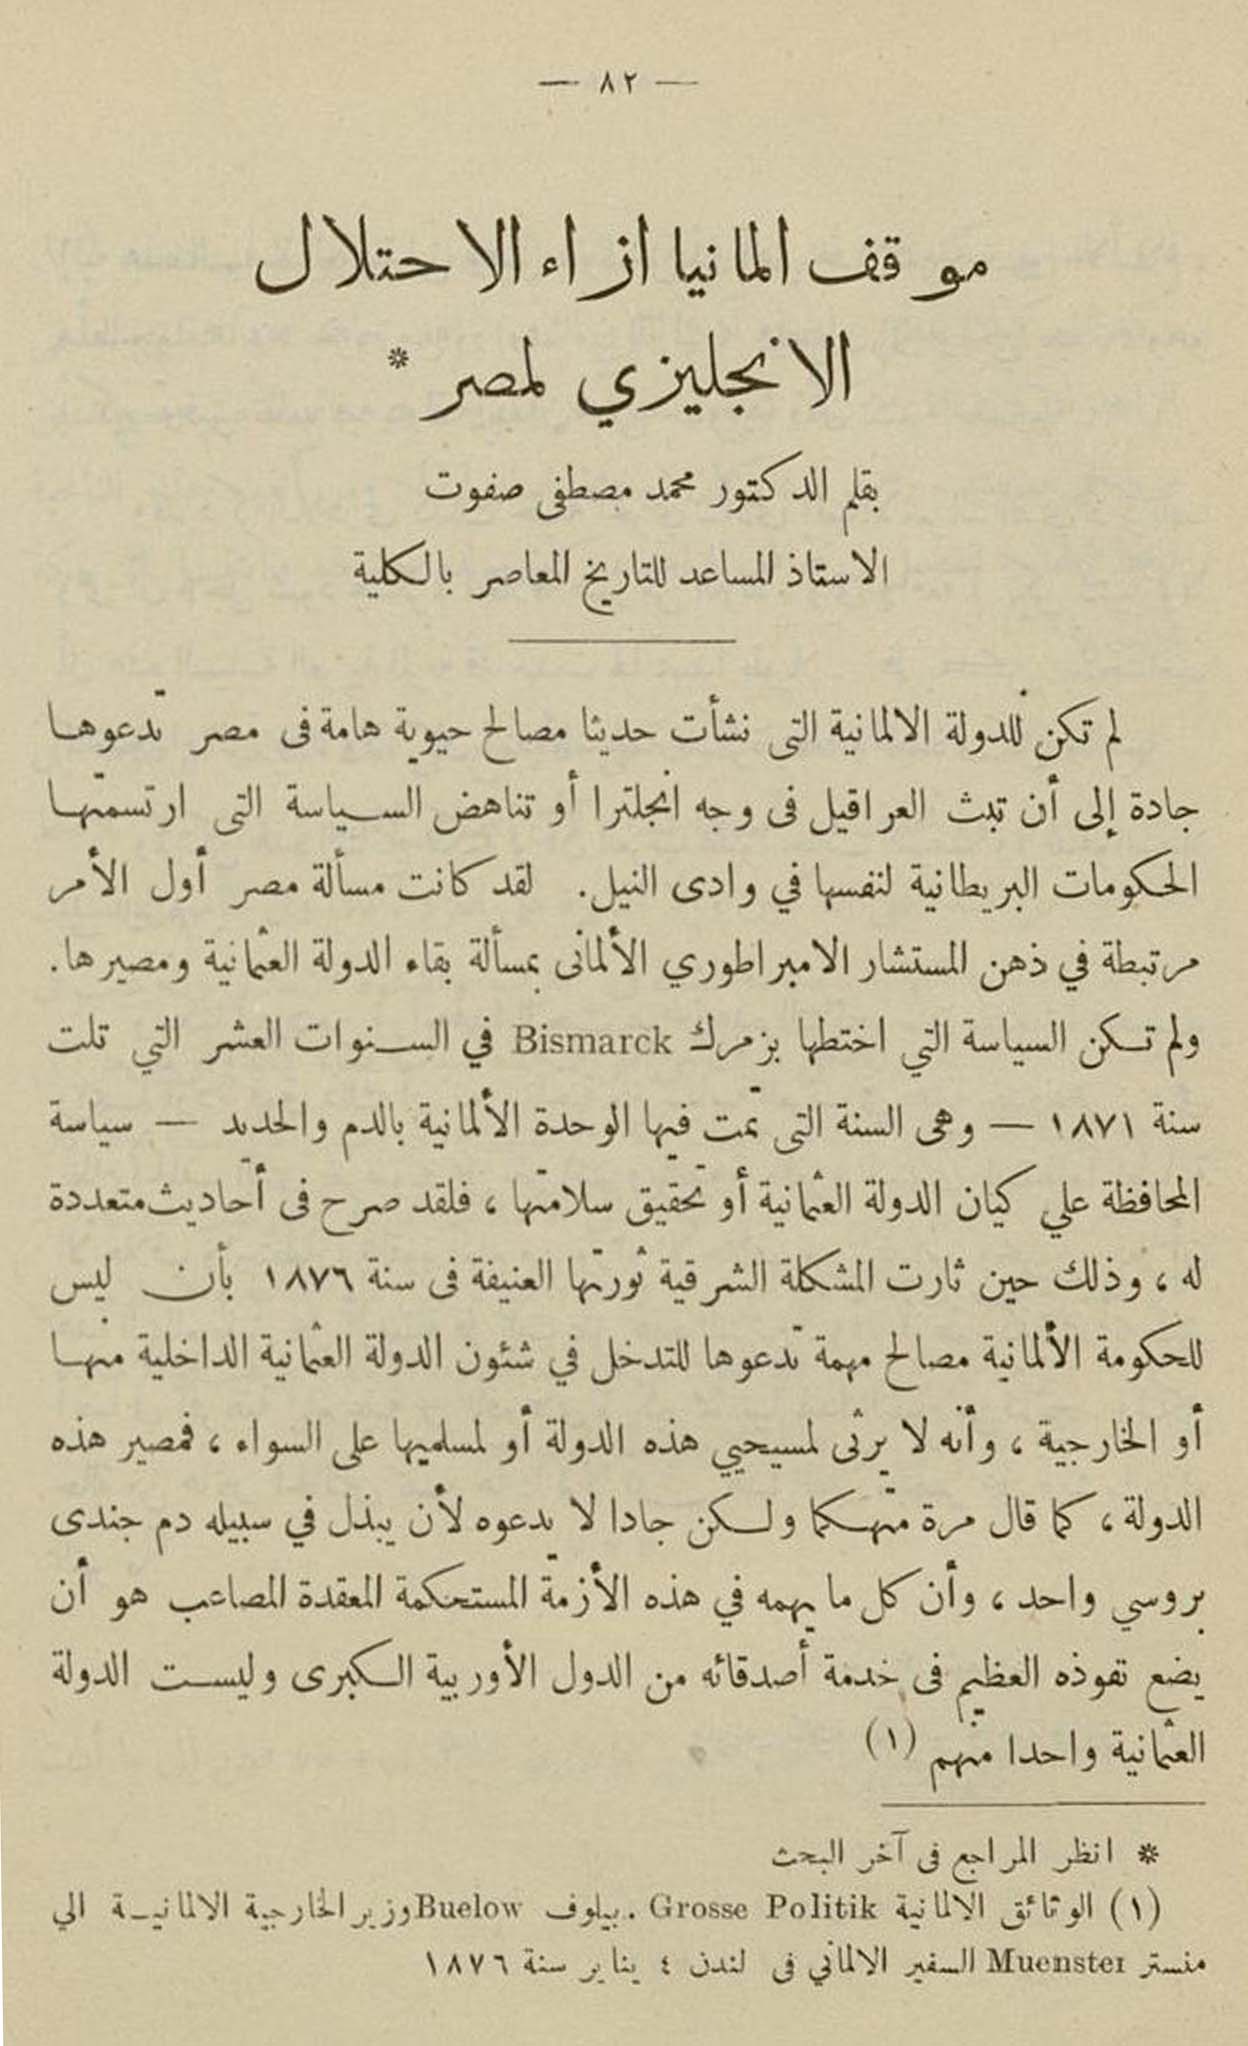 — ٨٢ —
موقف المانيا ازاء الاحتلال
الانجليزي لمصر *
بقلم الدكتور محمد مصطفى صفوت
الاستاذ المساعد للتاريخ المعاصر بالكلية
لم تكن للدولة الالمانية التى نشأت حديثا مصالح حيوية هامة فى مصر تدعوها
جادة إلى أن تبث العراقيل فى وجه انجلترا أو تناهض السياسة التى ارتسمتها
الحكومات البريطانية لنفسها في وادى النيل . لقد كانت مسألة مصر أول الأمر
مرتبطة في ذهن المستشار الامبراطوري الألمانى بمسألة بقاء الدولة العثمانية ومصيرها .
ولم تكن السياسة التي اختطها بزمرك Bismarck في السنوات العشر التي تلت
سنة ١٨٧١ — وهى السنة التى تمت فيها الوحدة الألمانية بالدم والحديد — سياسة
المحافظة علي كيان الدولة العثمانية أو تحقيق سلامتها ، فلقد صرح فى أحاديث متعددة
له ، وذلك حين ثارت المشكلة الشرقية ثورتها العنيفة فى سنة ١٨٧٦ بأن ليس
للحكومة الألمانية مصالح مهمة تدعوها للتدخل في شئون الدولة العثمانية الداخلية منها
أو الخارجية ، وأنه لا يرثى لمسيحيي هذه الدولة أو لمسلميها على السواء ، فمصير هذه
الدولة ، كما قال مرة متهكما ولكن جادا لا يدعوه لأن يبذل في سبيله دم جندى
بروسي واحد ، وأن كل ما يهمه في هذه الأزمة المستحكمة المعقدة المصاعب هو أن
يضع نفوذه العظيم فى خدمة أصدقائه من الدول الأوربية الكبرى وليست الدولة
العثمانية واحدا منهم (١)
* انظر المراجع فى آخر البحث
(١) الوثائق الالمانية Grosse Politik . بيلوف Buelow وزير الخارجية الالمانية الي
منستر Muenster السفير الالمانى فى لندن ٤ يناير سنة ١٨٧٦